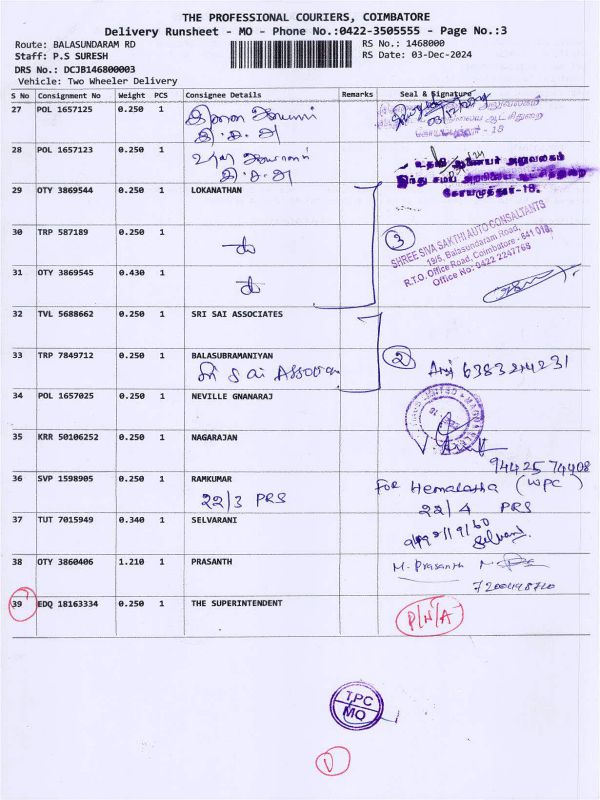 THE PROFESSIONAL COURIERS, COIMBATORE
Delivery Runsheet - MO - Phone No.:0422-3505555 - Page No.:3
Route: BALASUNDARAM RD RS No.: 1468000
Staff: P.S SURESH RS Date: 03-Dec-2024
DRS No.: DCJB146800003
Vehicle: Two Wheeler Delivery
S No Consignment No Weight PCS Consignee Details Remarks Seal & Signature
27 POL 1657125 0.250 1
28 POL 1657123 0.250 1
உதவி ஆணையர் அலுவலகம்
இந்து சமய அறநிலைய ஆட்சித்துறை
கோயமுத்தூர்-18.
29 OTY 3869544 0.250 1 LOKANATHAN
30 TRP 587189 0.250 1 do 3
SHREE SIVA SAKTHI AUTO CONSULTANTS
19/5, Balasundaram Road,
R.T.O. Office Road, Coimbatore - 641 018.
Office No: 0422 2247768
31 OTY 3869545 0.430 1 do
32 TVL 5688662 0.250 1 SRI SAI ASSOCIATES
33 TRP 7849712 0.250 1 BALASUBRAMANIYAN 2
Sri Sai
34 POL 1657025 0.250 1 NEVILLE GNANARAJ
35 KRR 50106252 0.250 1 NAGARAJAN
9442574408
36 SVP 1598905 0.250 1 RAMKUMAR For Hemalatha (WPC)
22/3 PRS 22/4 PRS
37 TUT 7015949 0.340 1 SELVARANI
Selvarani
38 OTY 3860406 1.210 1 PRASANTH M. Prasanth
39 EDQ 18163334 0.250 1 THE SUPERINTENDENT P/N/A
TPC
MO